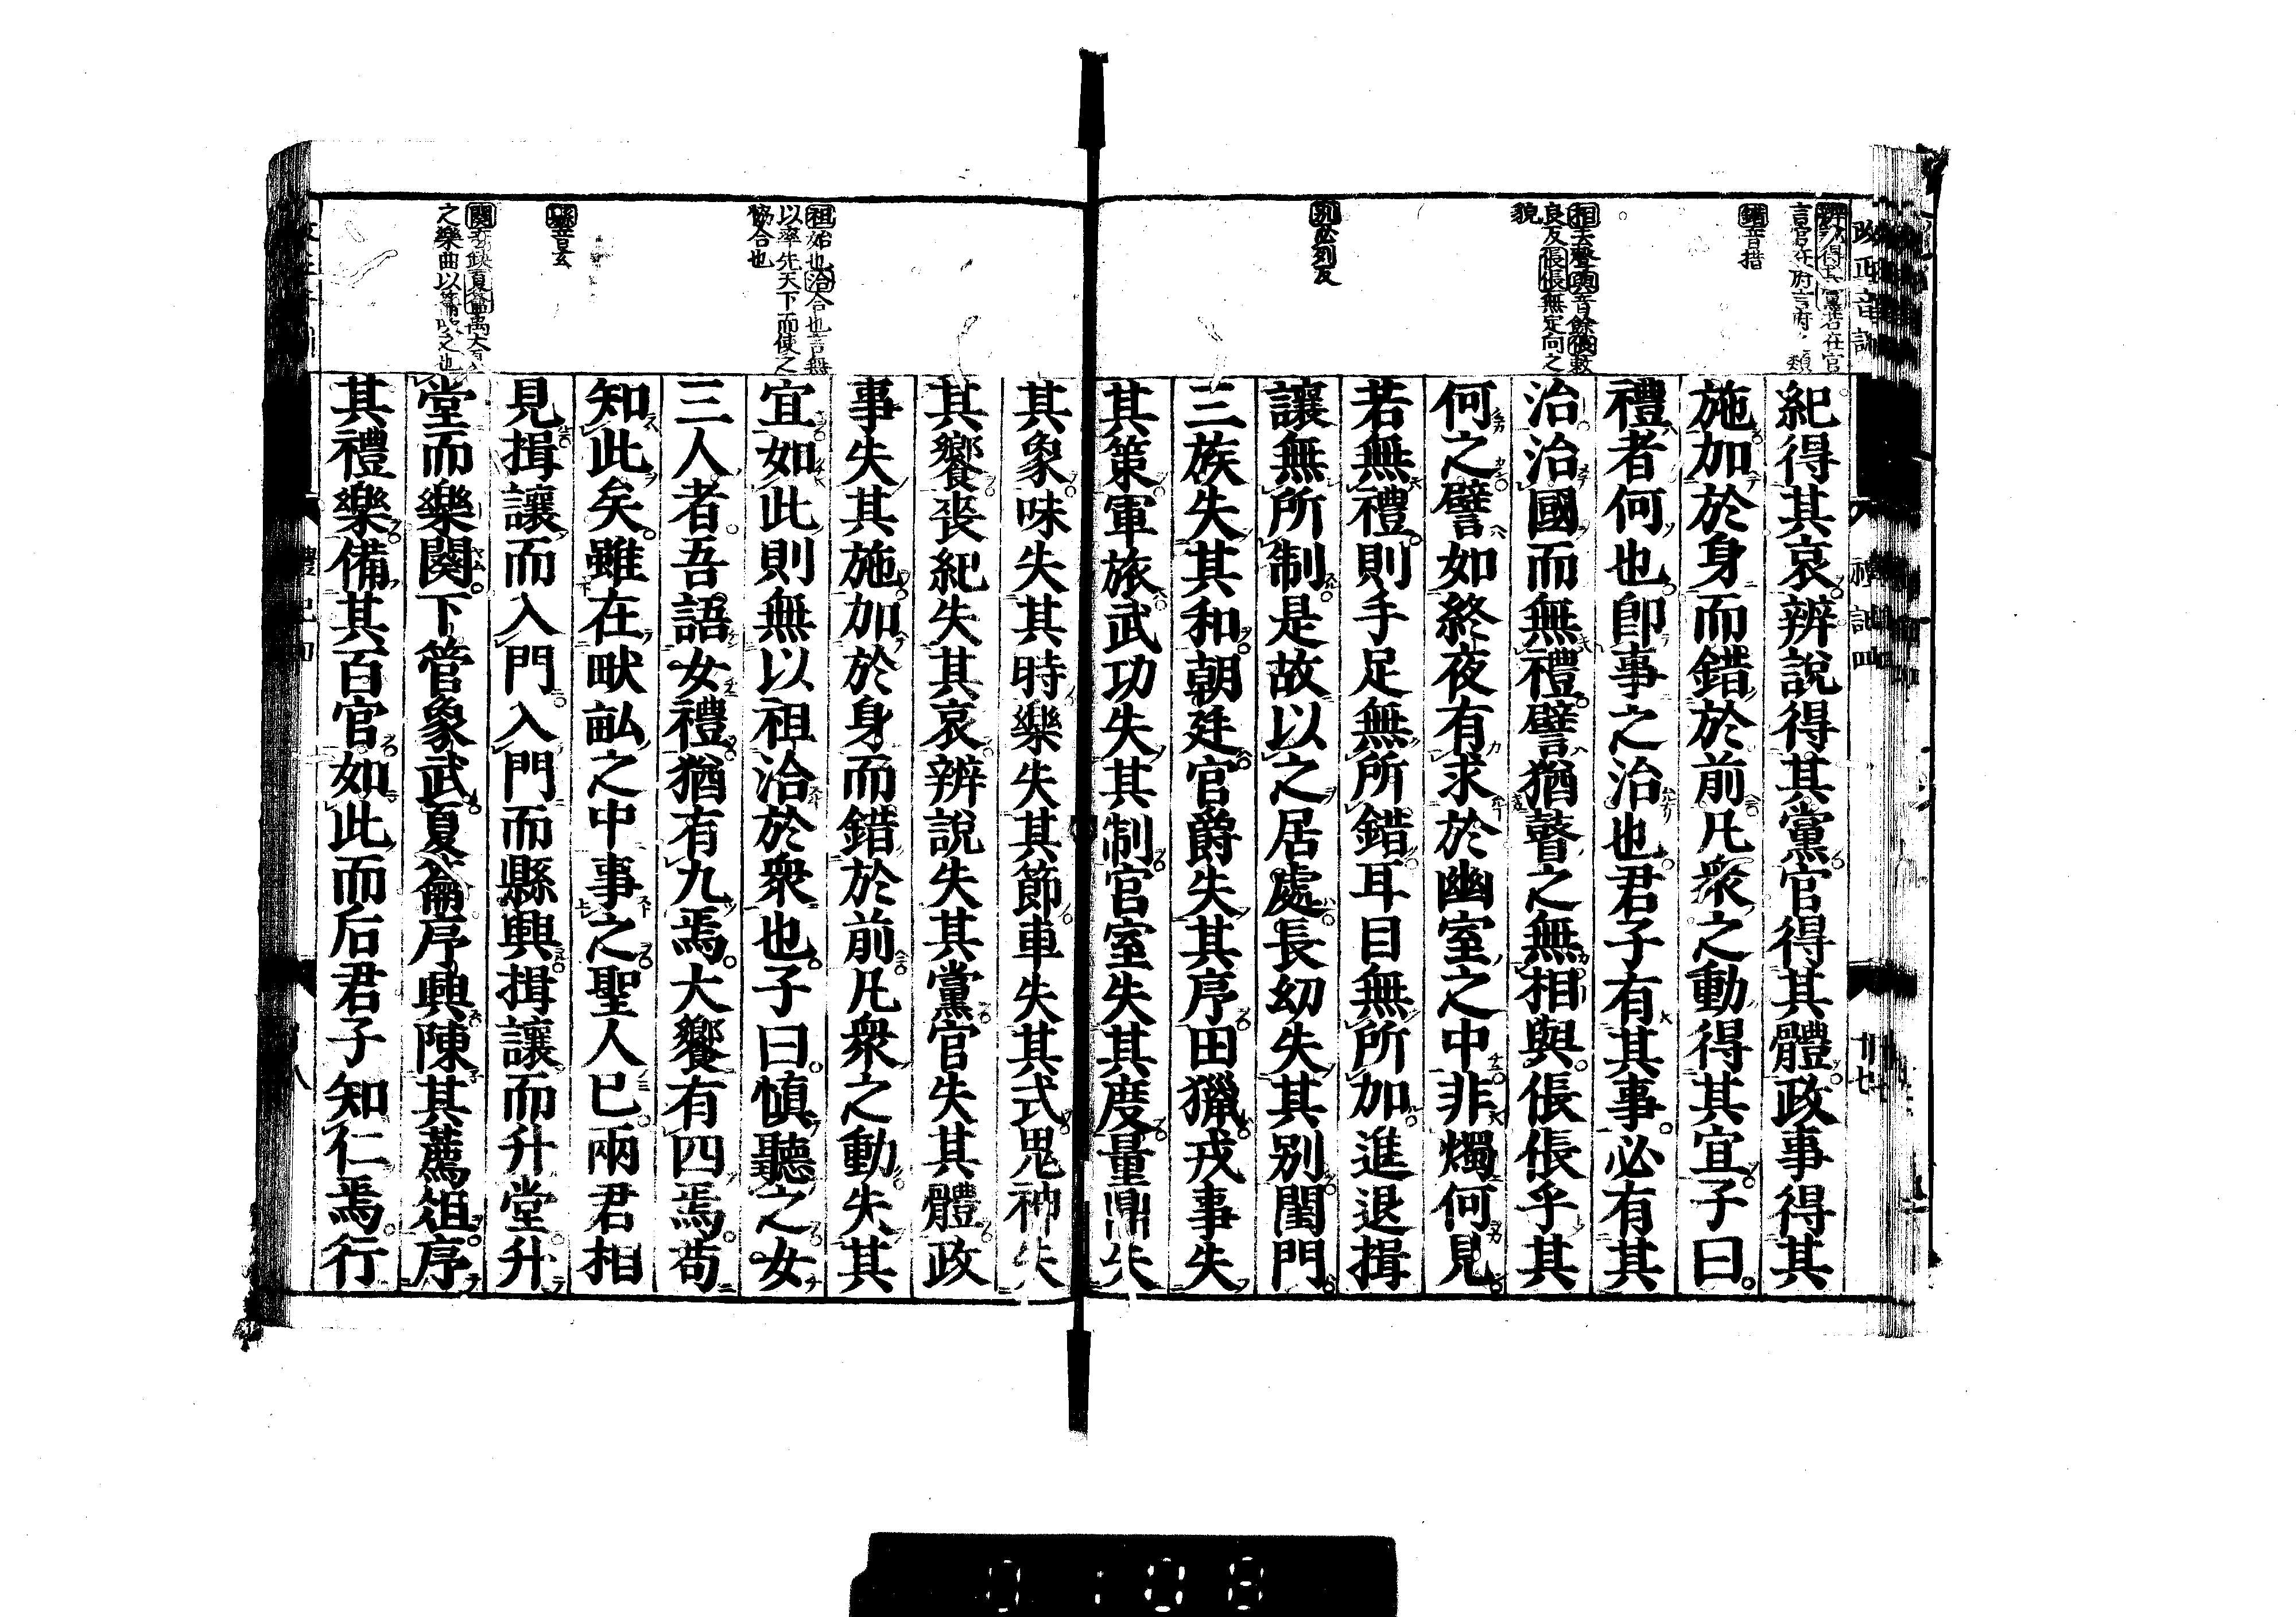 紀得其哀辨說得其黨官得其體政事得其
施加於身而錯於前凡衆之動得其宜子曰
禮者何也即事之治也君子有其事必有其
治治國而無禮譬猶瞽之無相與倀倀乎其
何之譬如終夜有求於幽室之中非燭何見
若無禮則手足無所錯耳目無所加進退揖
讓無所制是故以之居處長幼失其別閨門
三族失其和朝廷官爵失其序田獵戎事失
其策軍旅武功失其制官室失其度量鼎失
其象味失其時樂失其節車失其式鬼神失
其饗喪紀失其哀辨說失其黨官失其體政
事失其施加於身而錯於前凡衆之動失其
宜如此則無以祖洽於衆也子曰慎聽之女
三人者吾語女禮猶有九焉大饗有四焉苟
知此矣雖在畎畝之中事之聖人已兩君相
見揖讓而入門入門而縣興揖讓而升堂升
堂而樂闋下管象武夏籥序興陳其薦俎序
其禮樂備其百官如此而后君子知仁焉行
錯音措
相去聲與音餘倀敕
良反倀倀無定向之
貌
別必列反
祖始也洽合也言無
以率先天下而使之
協合也
縣音玄
之樂曲以籥吹之也
廿七
0108